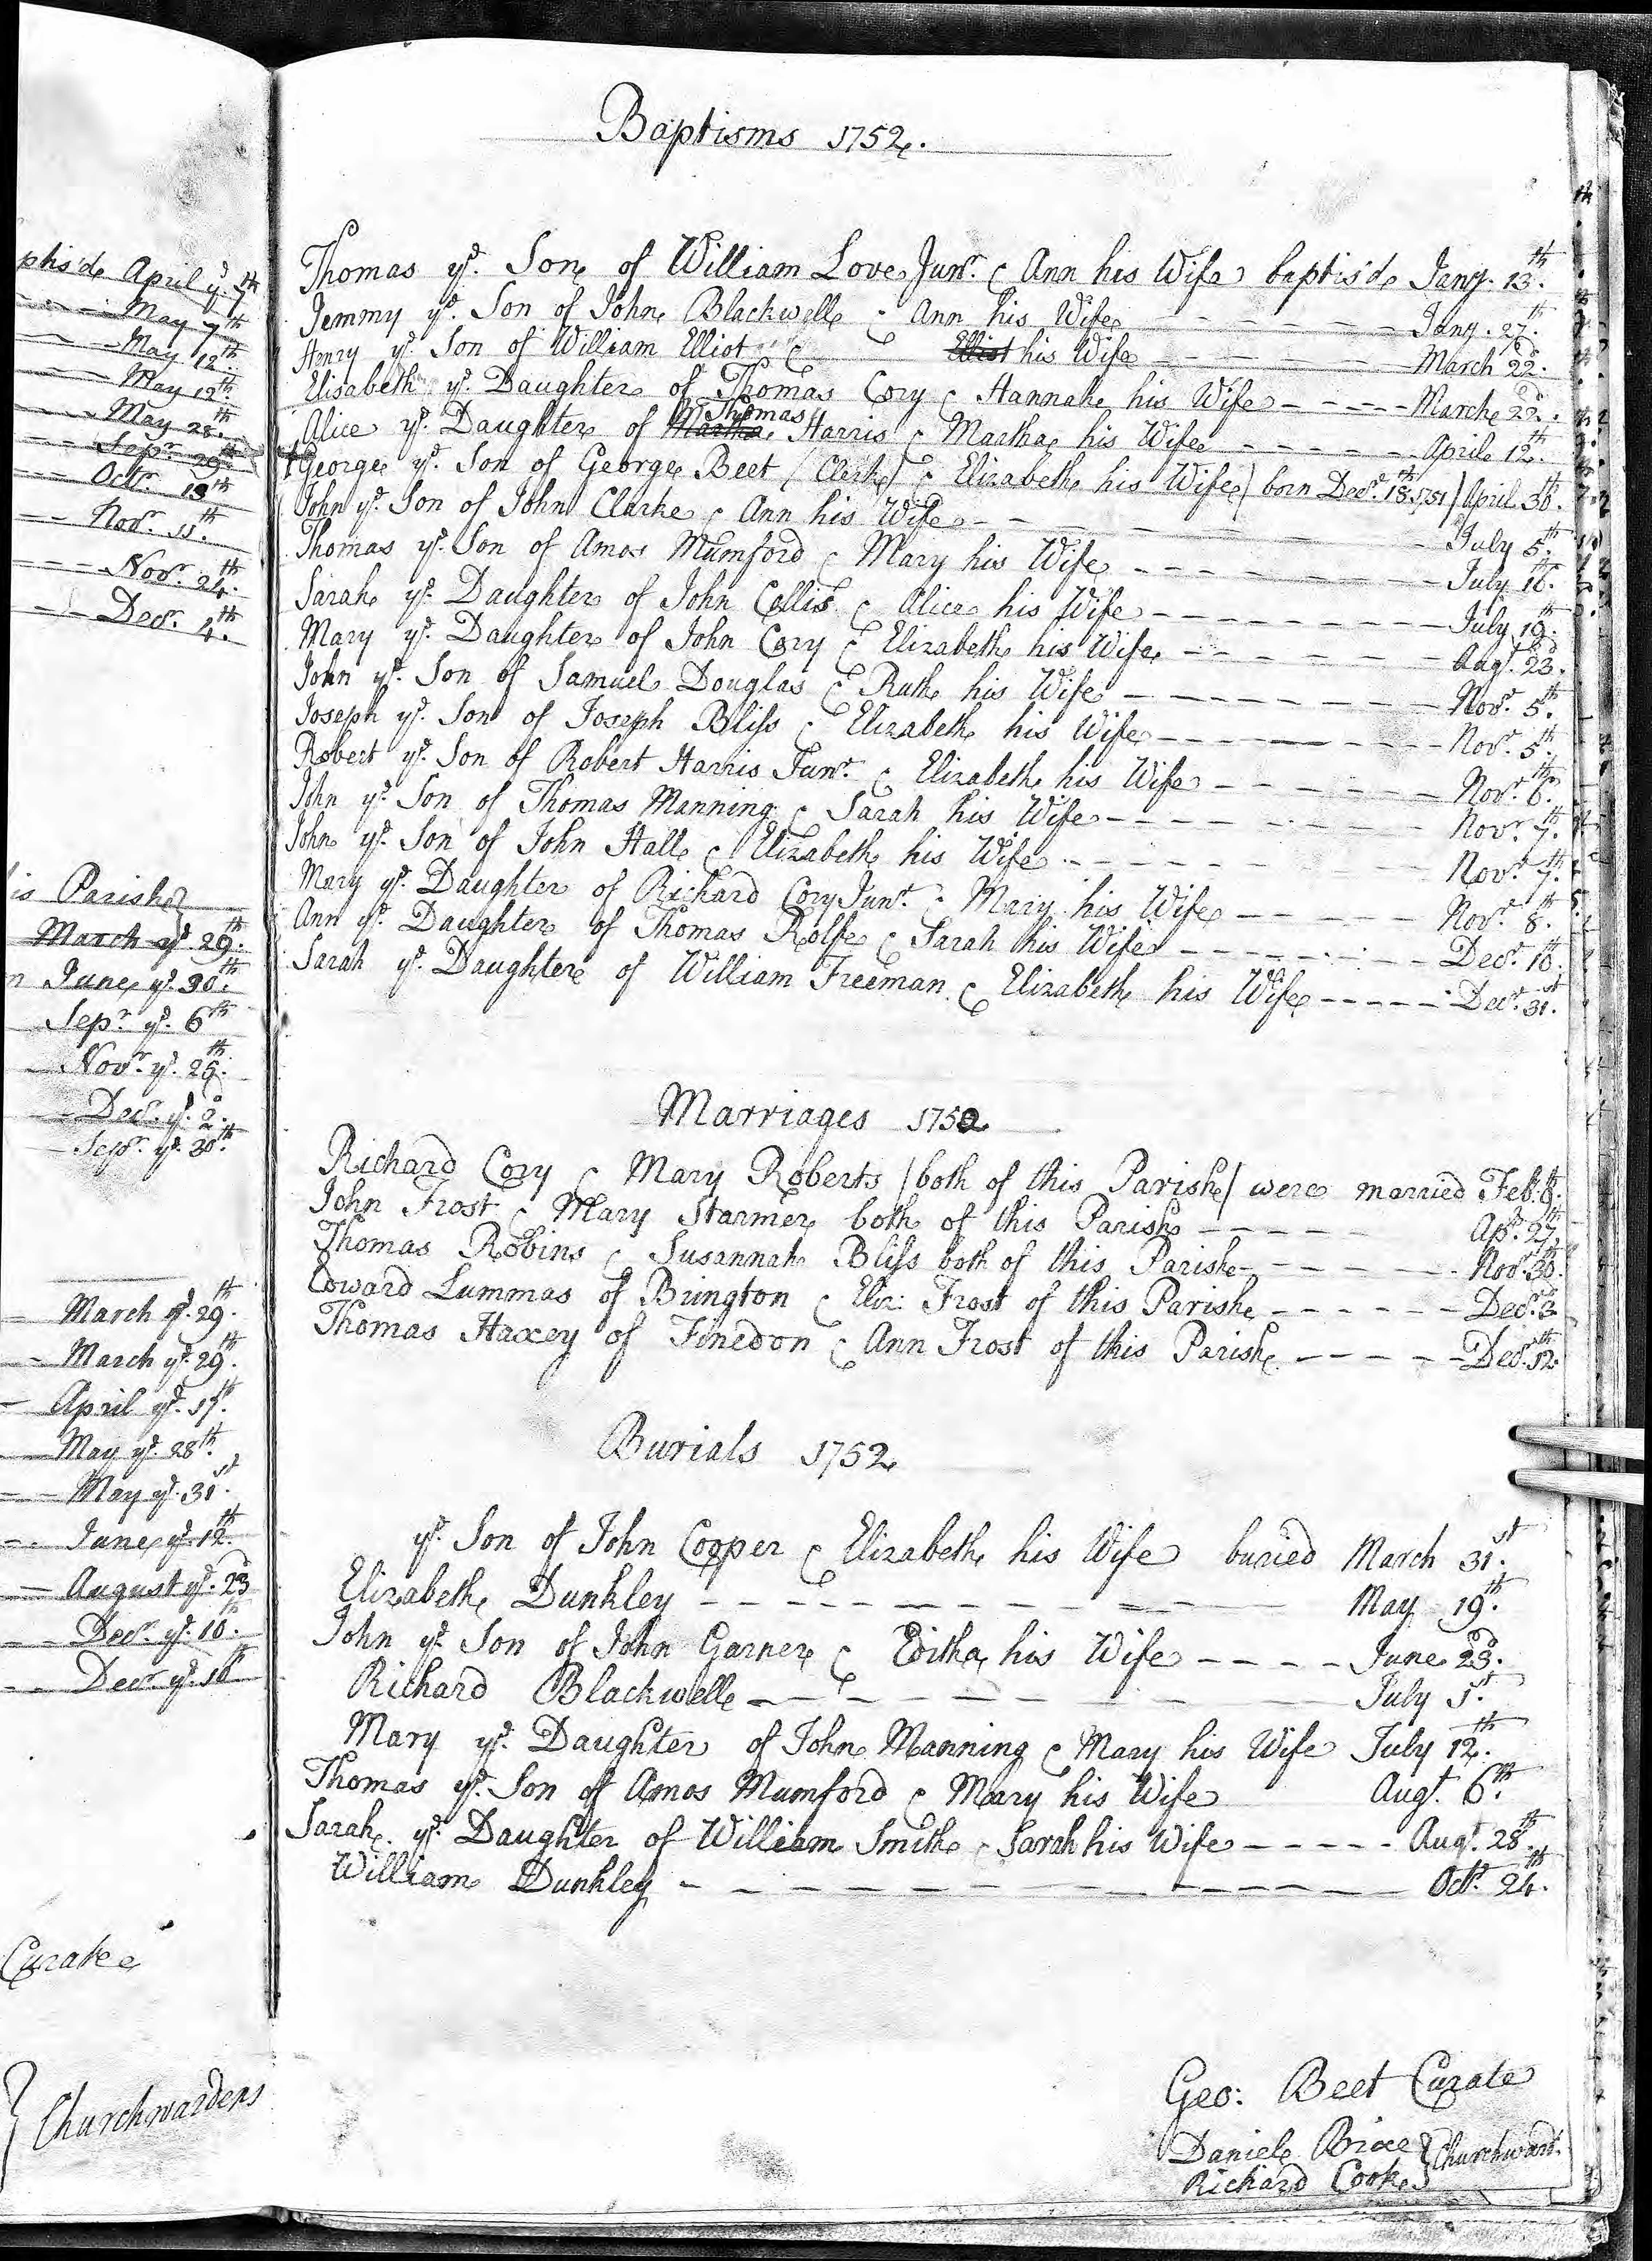 phis'd April ye. 7th
May 7th
May 12th.
May 19th.
May 28th.
Sepr. 29th
Octr. 13th
Novr. 11th.
Novr. 24th.
Decr. 4th.
is Parish
March ye. 29th.
n June ye. 30th.
Sepr. ye. 6th
Novr. ye. 25th.
Decr. ye. 2d.
Sepr. ye. 30th.
March ye. 29th.
March ye. 29th.
April ye. 17th.
May ye. 28th.
May ye. 31st.
June ye. 12th.
August ye. 23d
Decr. ye. 10th.
Decr. ye. 10th
Curate
Churchwardens
Baptisms 1752.
Thomas ye. Son of William Love Junr. & Ann his Wife baptis'd Jany. 13th.
Jemmy ye. Son of John Blackwell & Ann his Wife Jany. 27th.
Henry ye. Son of William Elliot & Elliot his Wife March 22d.
Elisabeth ye. Daughter of Thomas Cory & Hannah his Wife March 22d.
Alice ye. Daughter of Martha Thomas Harris & Martha his Wife April 12th.
George ye. Son of George Beet (Clerk) & Elizabeth his Wife) born Decr. 18th. 1751) April 30th.
John ye. Son of John Clarke & Ann his Wife July 5th.
Thomas ye. Son of Amos Mumford & Mary his Wife July 16th.
Sarah ye. Daughter of John Collis & Alice his Wife July 19th.
Mary ye. Daughter of John Cory & Elizabeth his Wife Augt. 23d.
John ye. Son of Samuel Douglas & Ruth his Wife Novr. 5th.
Joseph ye. Son of Joseph Bliss & Elizabeth his Wife Novr. 5th.
Robert ye. Son of Robert Harris Junr. & Elizabeth his Wife Novr. 6th.
John ye. Son of Thomas Manning & Sarah his Wife Novr. 7th.
John ye. Son of John Hall & Elizabeth his Wife Novr. 7th.
Mary ye. Daughter of Richard Cory Junr. & Mary his Wife Novr. 8th.
Ann ye. Daughter of Thomas Rolfe & Sarah his Wife Decr. 10th.
Sarah ye. Daughter of William Freeman & Elizabeth his Wife Decr. 31st.
Marriages 1752
Richard Cory & Mary Roberts (both of this Parish) were married Feb. 8th.
John Frost & Mary Starmer both of this Parish Apr. 27th.
Thomas Robins & Susannah Bliss both of this Parish Novr. 30th.
Edward Lummas of Brington & Eliz: Frost of this Parish Decr. 3d
Thomas Haxey of Finedon & Ann Frost of this Parish Decr. 12th.
Burials 1752
ye. Son of John Cooper & Elizabeth his Wife buried March 31st.
Elizabeth Dunkley May 19th.
John ye. Son of John Garner & Editha his Wife June 23d.
Richard Blackwell July 1st.
Mary ye. Daughter of John Manning & Mary his Wife July 12th.
Thomas ye. Son of Amos Mumford & Mary his Wife Augt. 6th.
Sarah ye. Daughter of William Smith & Sarah his Wife Augt. 28th.
William Dunkley Octr. 24th.
Geo: Beet Curate
Daniel Brice
Richard Cooke } Churchward.